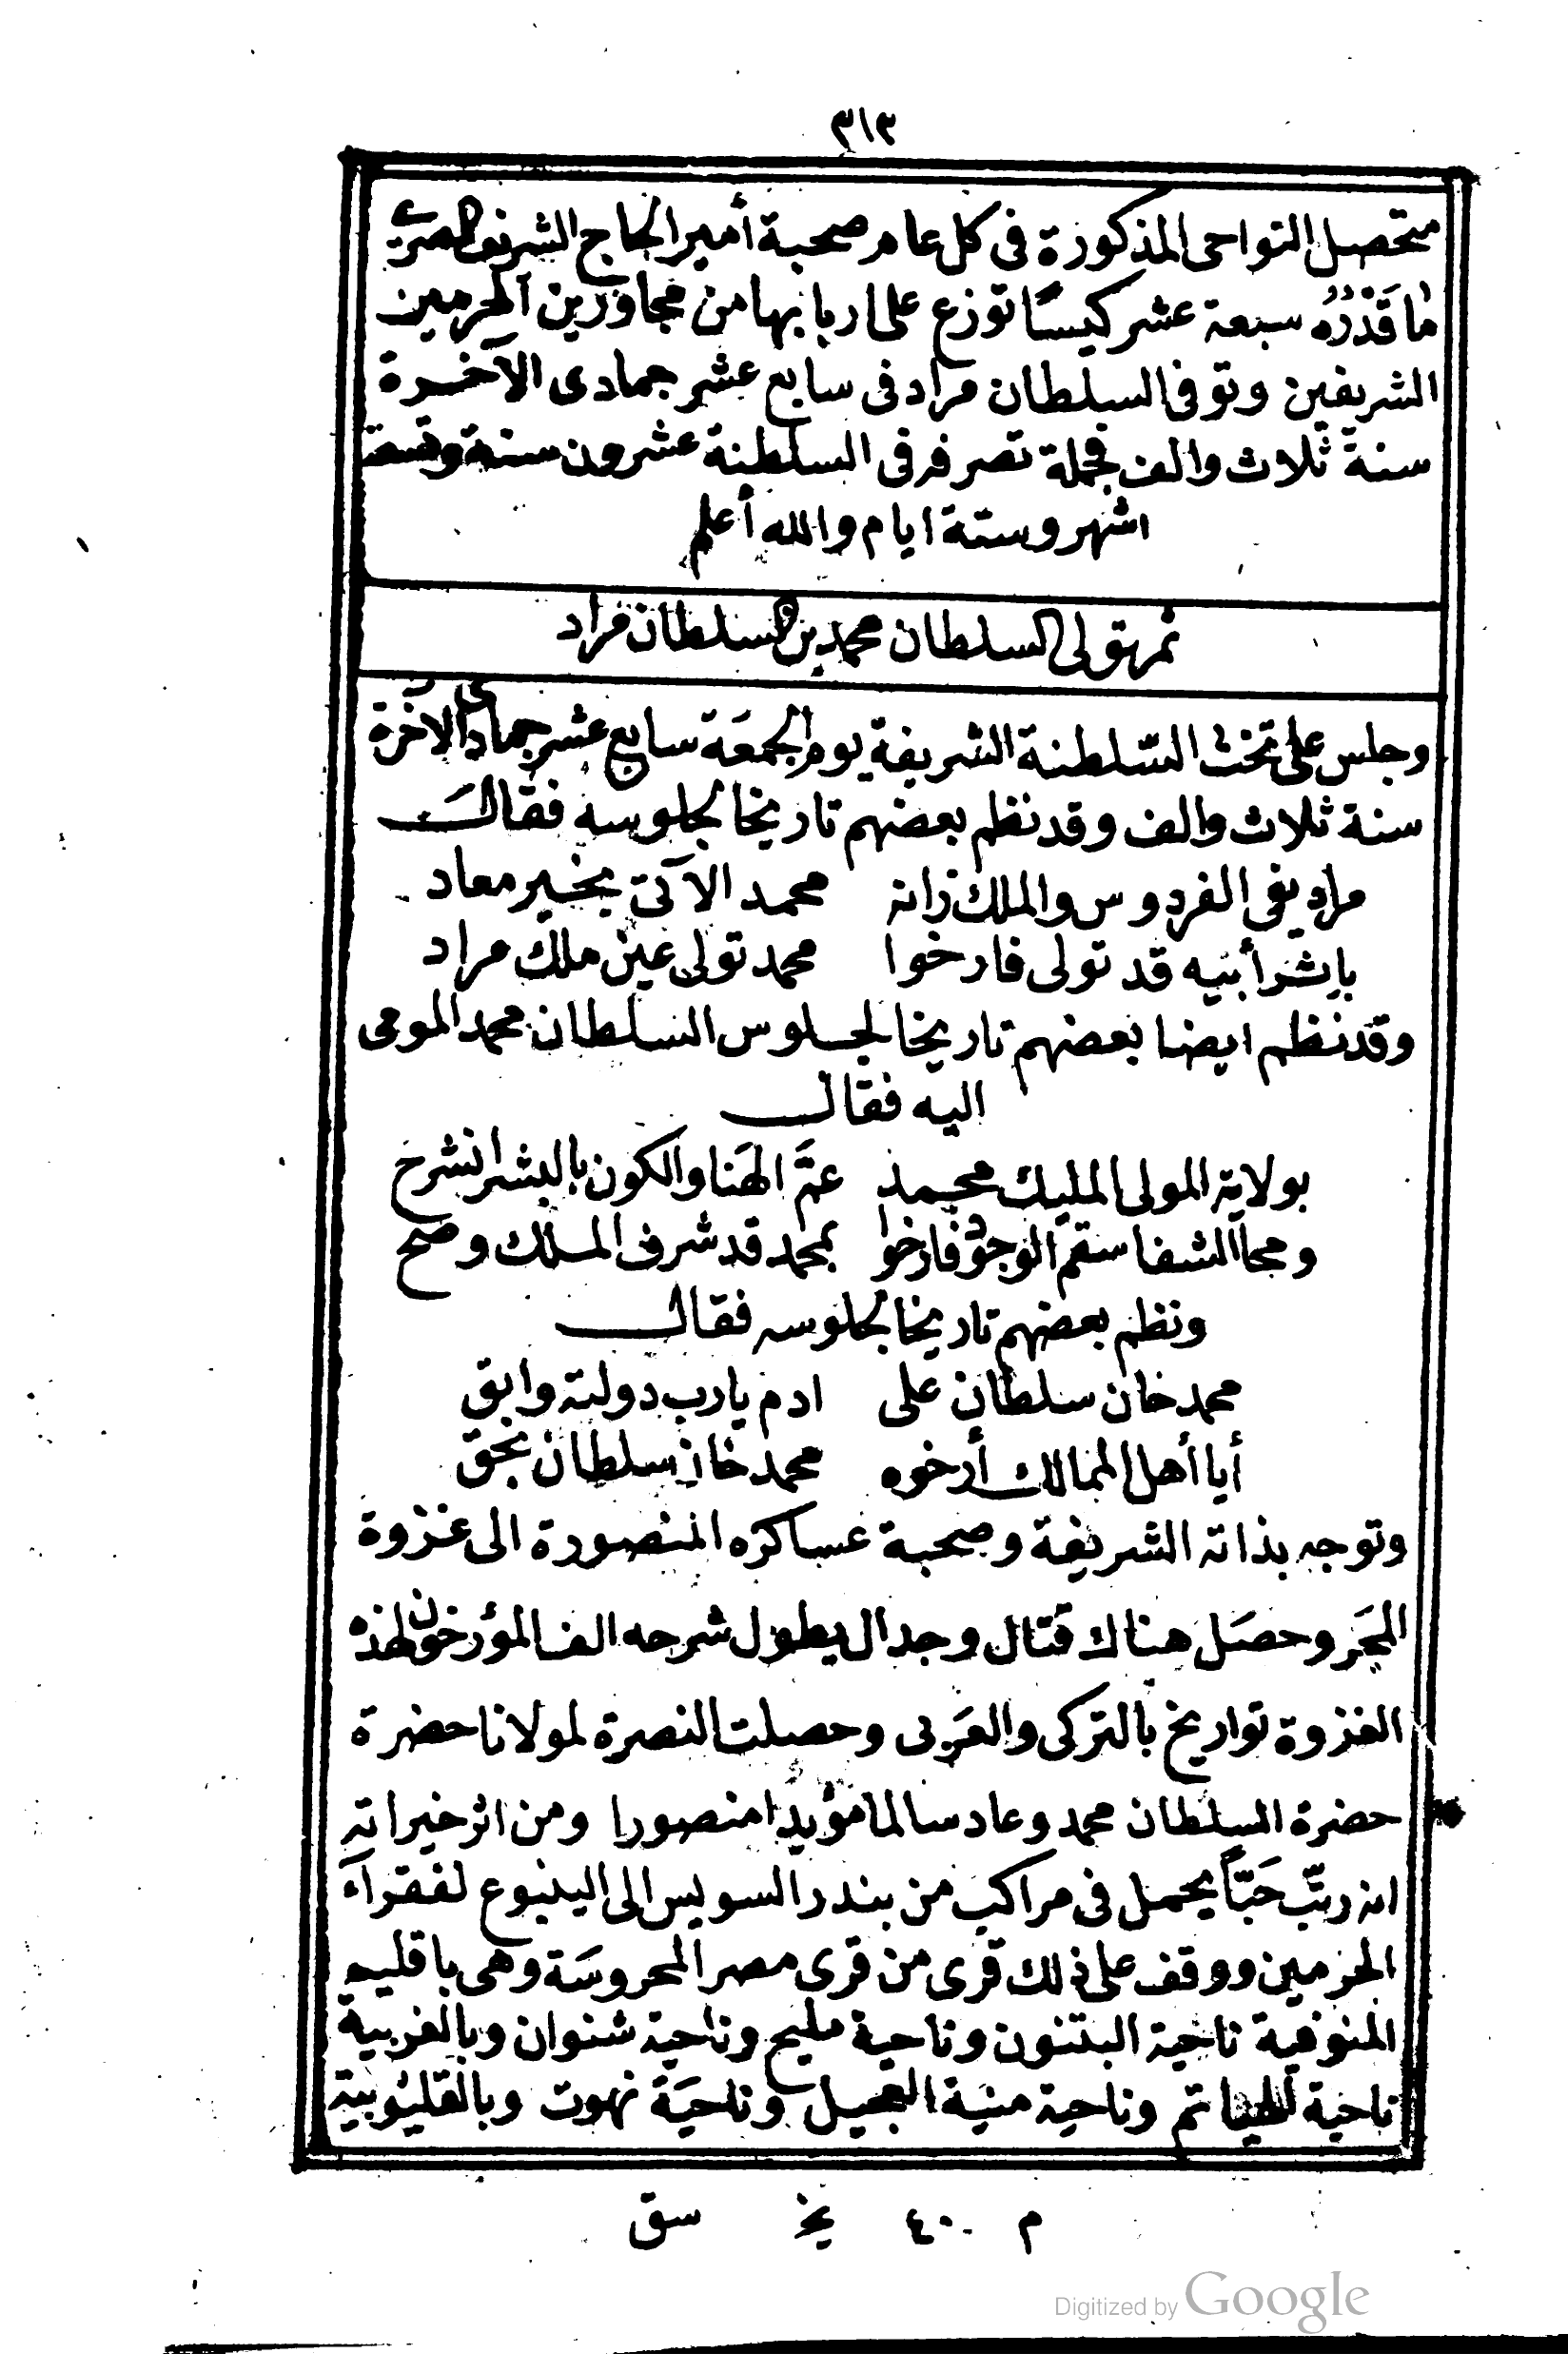 ٣١٣
متحصل النواحى المذكورة فى كل عام صحبة أمير الحاج الشريف المصرى
ما قَدْرُه سبعة عشر كيسًا توزع على اربابها من مجاورين الحرمين
الشريفين وتوفى السلطان مراد فى سابع عشر جمادى الآخرة
سنة ثلاث والف فجملة تصرفه فى السلطنة عشرون سنة وتسعة
اشهر وستة ايام والله أعلم
ثم تولى السلطان محمد بن السلطان مراد
وجلس على تخت السّلطنة الشريفة يوم الجمعَة سابع عشر جمادى الآخرة
سنة ثلاث والف وقد نظم بعضهم تاريخا لجلوسه فقالَ
مراد يفى الفردوس والملك زانه محمد الآتى بخير معاد
بإشر أبيه قد تولى فارخوا محمد تولى عين ملك مراد
وقد نظم ايضا بعضهم تاريخا لجلوس السلطان محمد المومى
اليه فقال
بولاية المولى المليك محمد عمَّ الهَنا والكون بالبشر انشرح
ومحا الشفا سقم الوجود فارخوا بمحمد قد شرف الملك وصح
ونظم بعضهم تاريخا لجلوسه فقال
محمد خان سلطان على ادم يارب دولته وابق
أيا أهل الممالك أرخوه محمد خان سلطان بحق
وتوجه بذاته الشريفة وصحبة عساكره المنصورة الى غزوة
المجَر وحصَل هناك قتال وجدال يطول شرحه الف المؤرخون لهذه
الغزوة تواريخ بالتركى والعَربى وحصلت النصرة لمولانا حضرة
حضرة السلطان محمد وعاد سالما مؤيدا منصورا ومن اثر خيراته
انه رتّب حَبّاً يحمل فى مراكب من بندر السويس الى الينبوع لفقراء
الحرمين ووقف على ذلك قرى من قرى مصر المحروسَة وهى باقليم
المنوفية ناحية البتنون وناحية مليج وناحية شنوان وبالغربية
ناحية الهياتم وناحية منية البجيل وناحيَة نهوت وبالقليوبية
م ٤٠ يخ سق
Digitized by Google